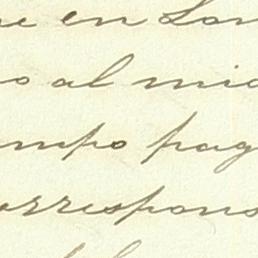 ue en Lon
o al mio
mpo pag
orrespons